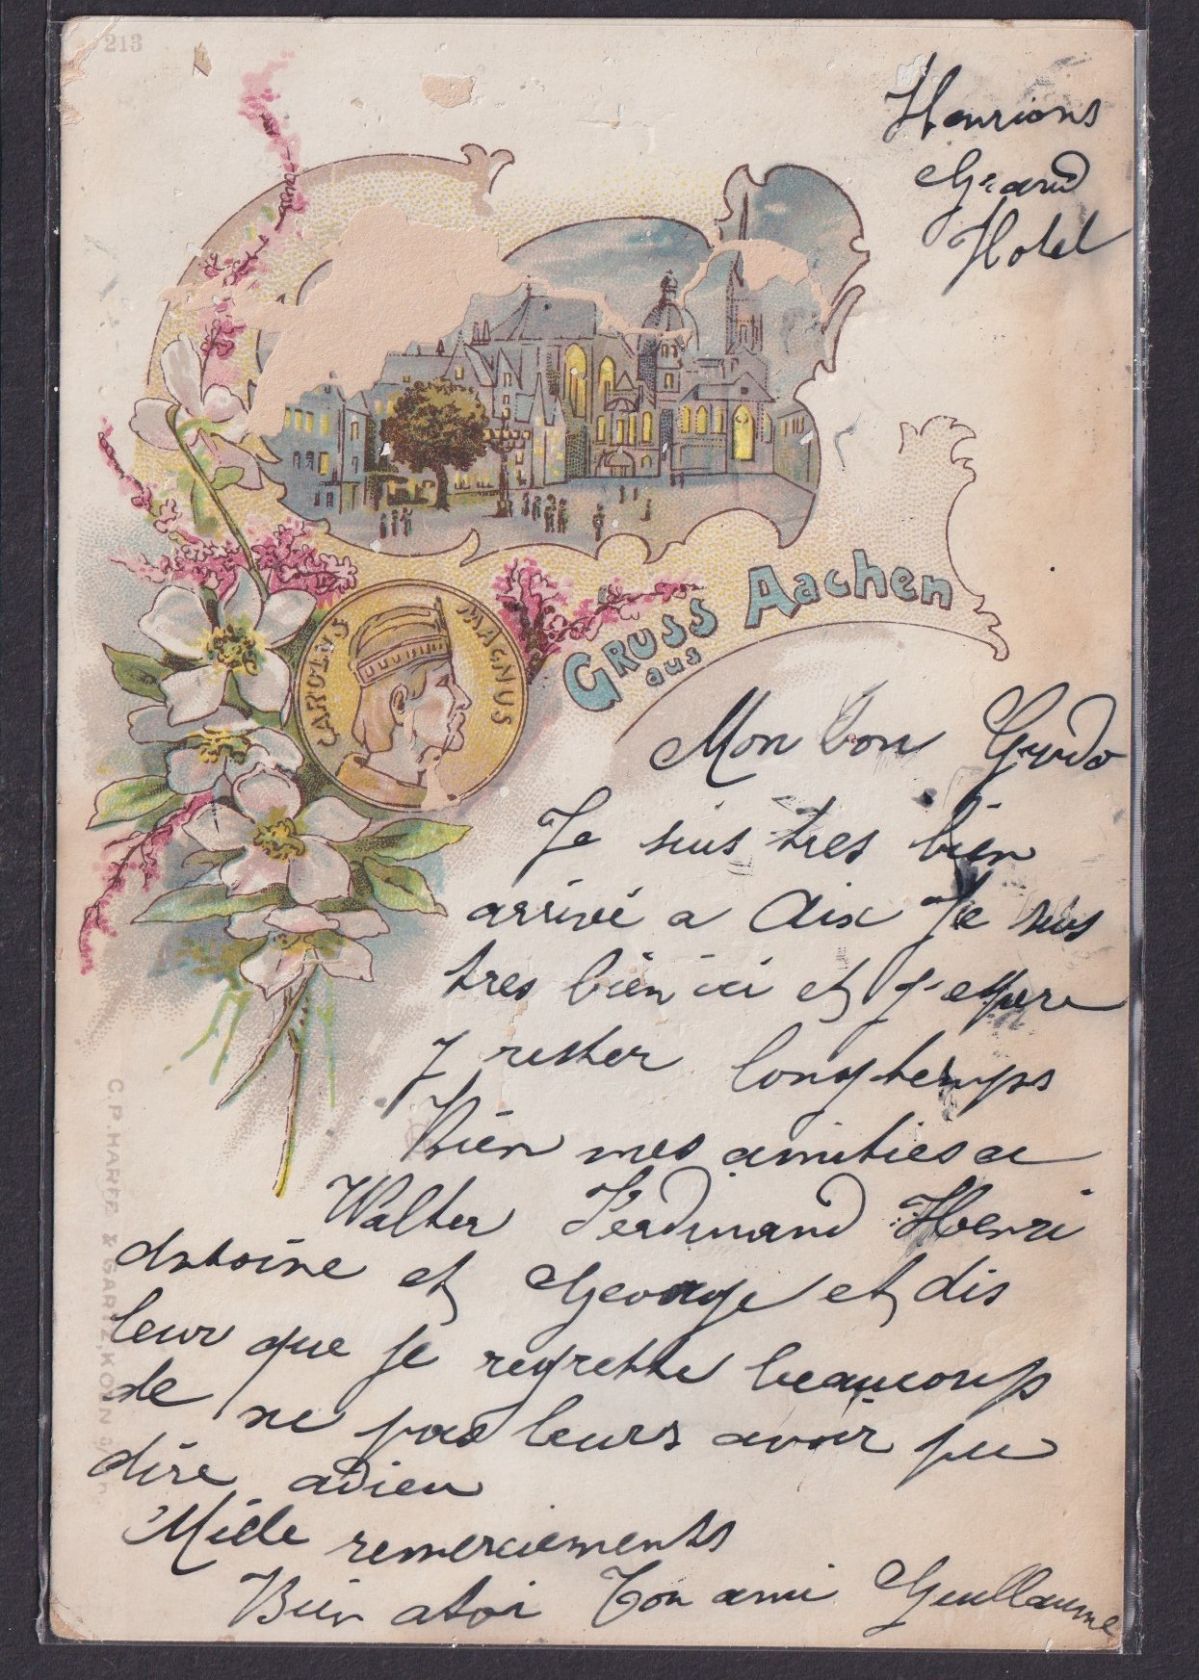 213
Henrions
Grand
Hotel
CAROLUS MAGNUS
GRUSS
aus
Aachen
Mon bon Guido
Je suis tres bien
arrivé a Aix Je suis
tres bien ici et j'espere
y rester longtemps
Bien mes amities a
Walter Ferdinand Henri
Antoine et George et dis
leur que je regrette beaucoup
de ne pas leurs avoir pu
dire adieu
Mille remerciements
Bien a toi Ton ami Guillaume
C.P. HARFF & GARTZ, KÖLN a/Rh.